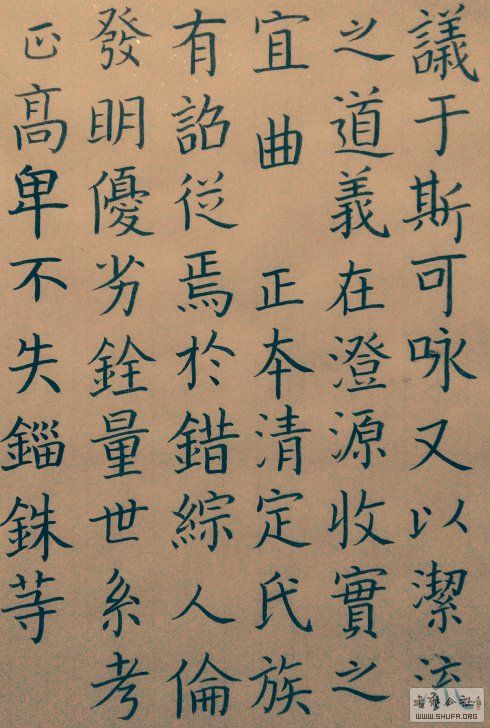 議于斯可咏又以潔流
之道義在澄源收實之
宜曲 正本清定氏族
有詔從焉於錯綜人倫
發明優劣銓量世系考
正髙卑不失錙銖䓁
WWW.SHUFA.ORG